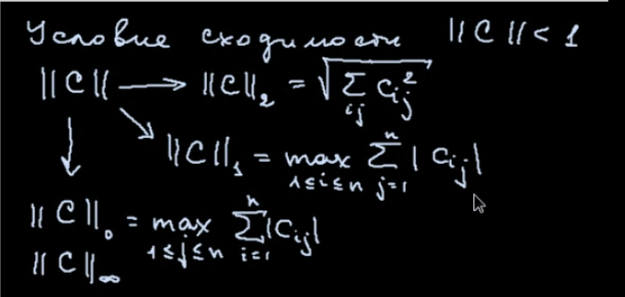 Условие сходимости ||C|| < 1
||C|| → ||C||₂ = √(∑_{ij} c_{ij}²)
||C||₁ = max_{1≤i≤n} ∑_{j=1}^{n} |c_{ij}|
||C||₀ = max_{1≤j≤n} ∑_{i=1}^{n} |c_{ij}|
||C||_∞